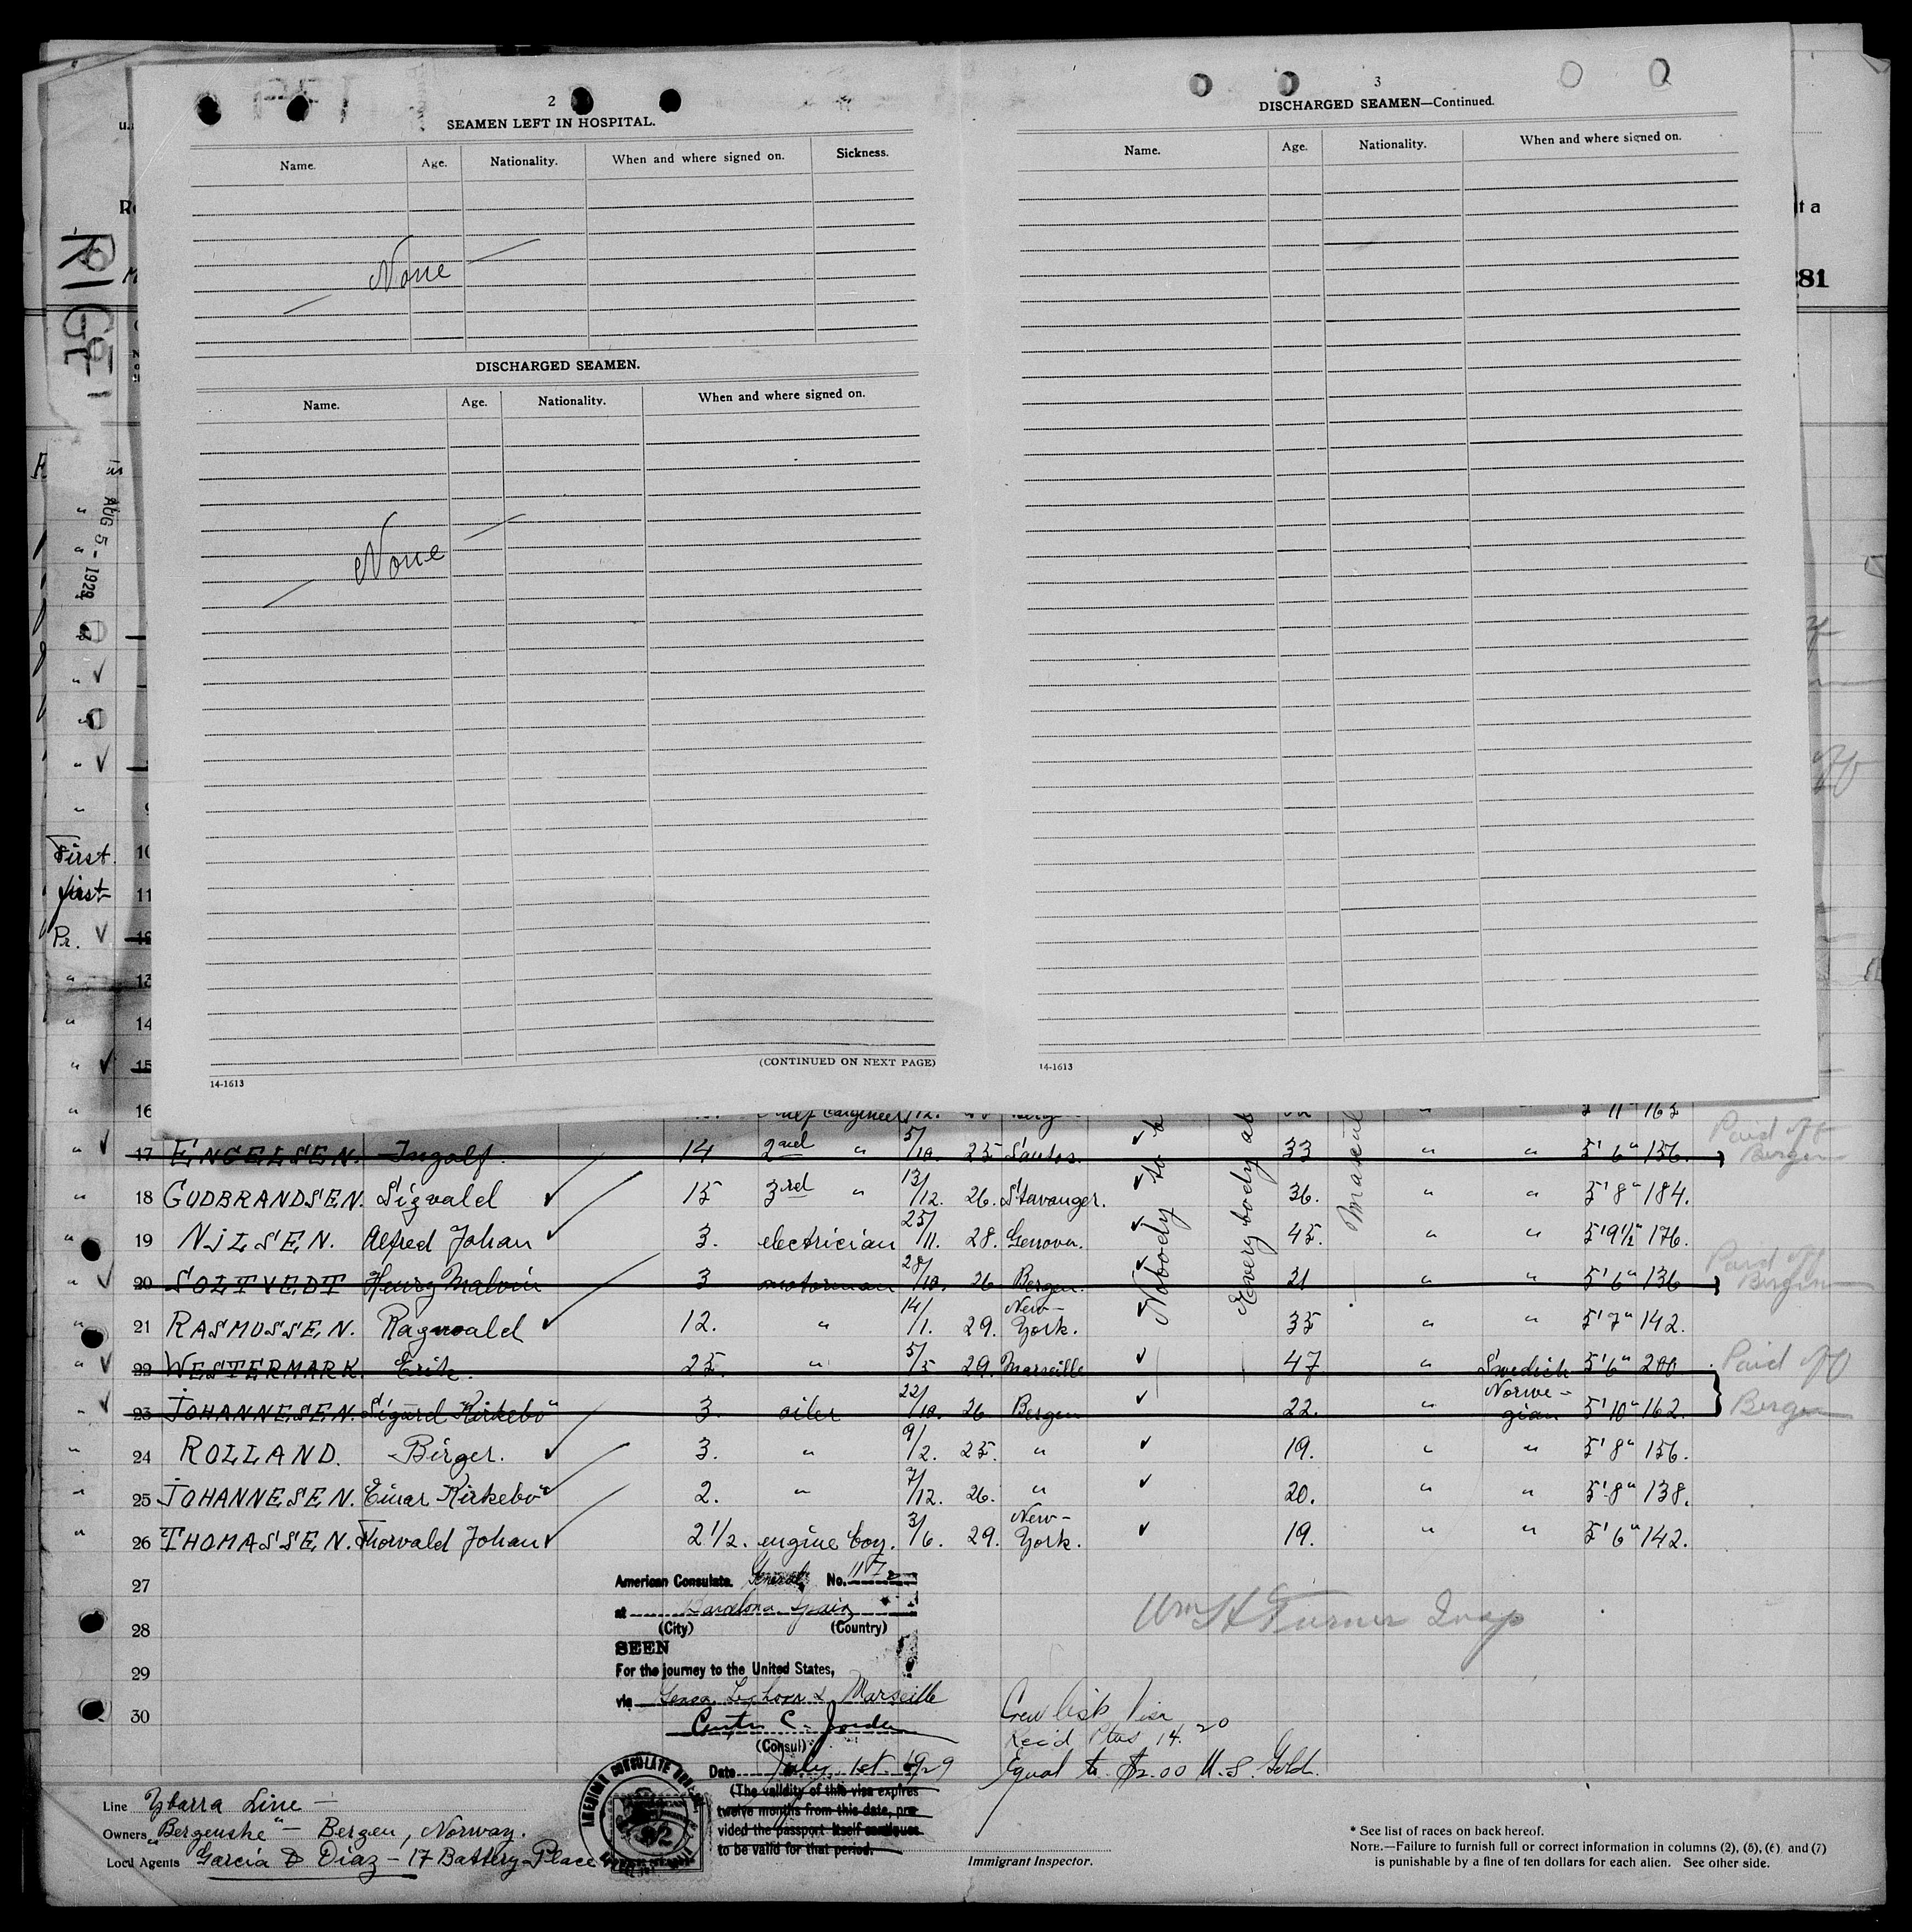 2
SEAMEN LEFT IN HOSPITAL.
Name. Age. Nationality. When and where signed on. Sickness.
None
DISCHARGED SEAMEN.
Name. Age. Nationality. When and where signed on.
None
(CONTINUED ON NEXT PAGE)
14-1613
3
DISCHARGED SEAMEN—Continued.
Name. Age. Nationality. When and where signed on.
14-1613
281
AUG 5 - 1929
First 10
first 11
Pr. ✓ 12
" 13
" 14
" ✓ 15
" 16
5' 11" 163
Nobody to
Everybody ab
" ✓ 17 ENGELSEN. Ingolf. 14 2nd " 5/10. 25 Santos. ✓ 33 " " 5' 6" 156. Paid off Bergen
" 18 GUDBRANDSEN. Sigvald ✓ 15 3rd " 13/12. 26. Stavanger. ✓ 36. " " 5' 8" 184.
" 19 NILSEN. Alfred Johan ✓ 3. electrician 25/11. 28. Genova. ✓ 45. " " 5' 9½" 176.
" ✓ 20 SOLTVEDT Henry Malvin 3 motorman 28/10. 26 Bergen. ✓ 21 " " 5' 6" 136 Paid off Bergen
" 21 RASMUSSEN. Ragnvald ✓ 12. " 14/1. 29. New-York. ✓ 35 " " 5' 7" 142.
" ✓ 22 WESTERMARK. Erik. 25. " 5/5 29. Marseille ✓ 47 " Swedish 5' 6" 200 Paid off
" ✓ 23 JOHANNESEN. Sigurd Kirkebö 3. oiler 22/10. 26 Bergen ✓ 22. " Norwegian 5' 10" 162. Bergen
" 24 ROLLAND. Birger. ✓ 3. " 9/2. 25. " ✓ 19. " " 5' 8" 156.
" 25 JOHANNESEN. Einar Kirkebö ✓ 2. " 7/12. 26. " ✓ 20. " " 5' 8" 138.
" 26 THOMASSEN. Thorvald Johan ✓ 2 1/2. engine boy. 3/6. 29. New-York. ✓ 19. " " 5' 6" 142.
27
28
29
30
American Consulate General, No.
at Barcelona Spain
(City) (Country)
SEEN
For the journey to the United States,
via Genoa, Leghorn & Marseille
(Consul)
Date July 1st 1929
(The validity of this visa expires
twelve months from this date, pro-
vided the passport itself continues
to be valid for that period.
Wm H Turner Insp
Crew list visa
Rec'd Ptas 14.20
Equal to $2.00 U.S Gold.
Line Ybarra Line —
Owners "Bergenske" — Bergen, Norway.
Local Agents Garcia & Diaz — 17 Battery Place
Immigrant Inspector.
* See list of races on back hereof.
NOTE.—Failure to furnish full or correct information in columns (2), (5), (6) and (7)
is punishable by a fine of ten dollars for each alien. See other side.